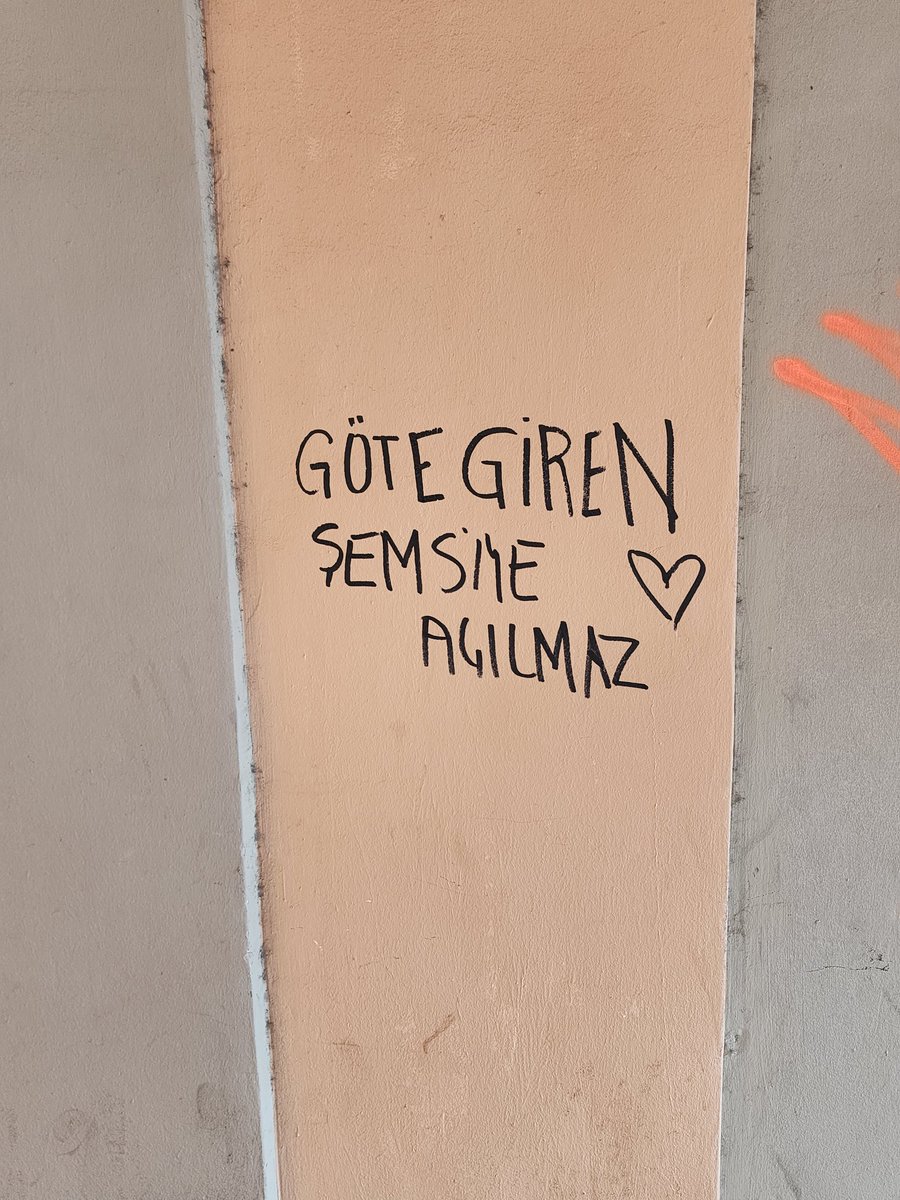 GÖTE GİREN
ŞEMSİYE
AÇILMAZ